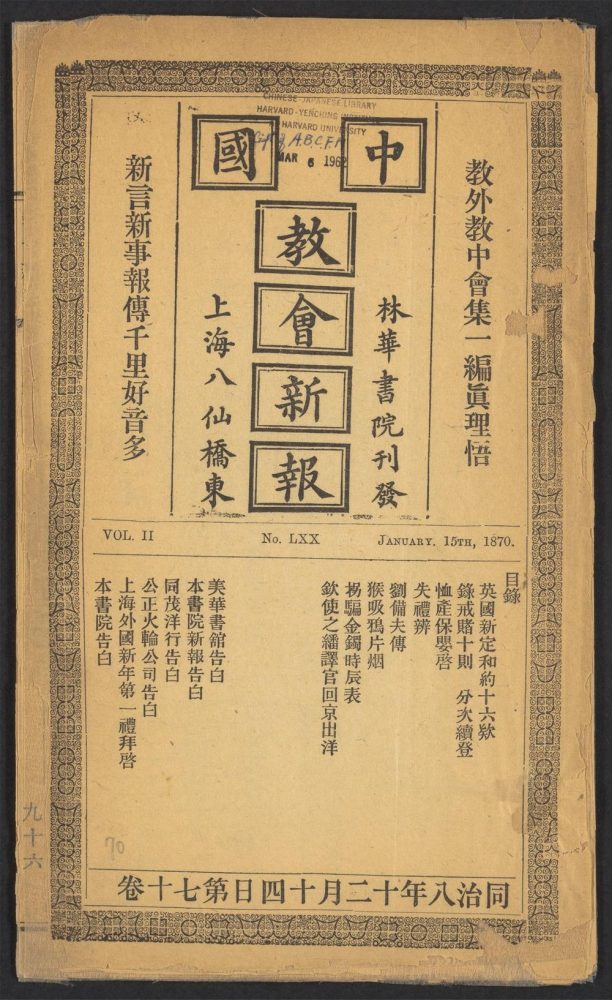 CHINESE-JAPANESE LIBRARY
HARVARD-YENCHING
HARVARD UNIVERSITY
MAR 6 1962
中國
教會新報
教外教中會集一編眞理悟
林華書院刊發
上海八仙橋東
新言新事報傳千里好音多
VOL. II No. LXX JANUARY. 15TH, 1870.
目錄
英國新定和約十六欵
錄戒賭十則 分次續登
恤產保嬰啓
失禮辨
劉備夫傳
猴吸鴉片烟
拐騙金鐲時辰表
欽使之繙譯官回京出洋
美華書館告白
本書院新報告白
同茂洋行告白
公正火輪公司告白
上海外國新年第一禮拜啓
本書院告白
同治八年十二月十四日第七十卷
九十六
70